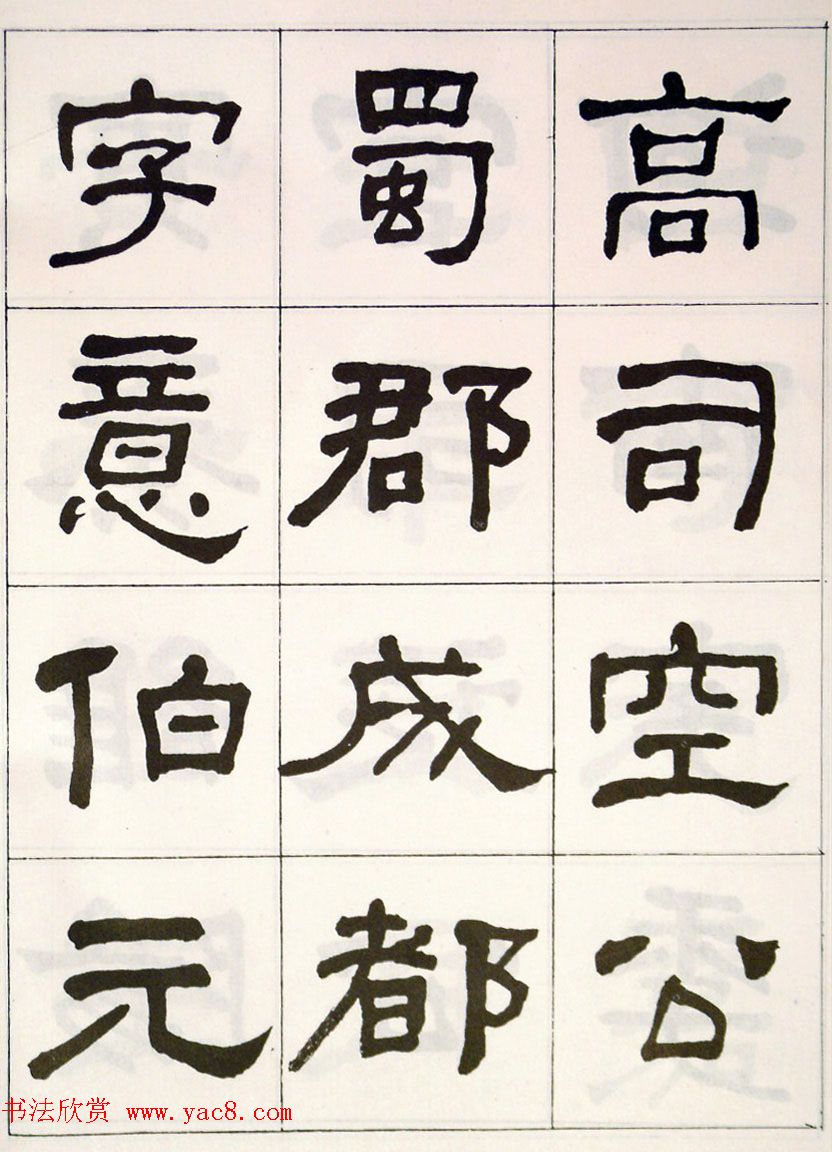 高司空公
蜀郡成都
字意伯元
书法欣赏 www.yac8.com